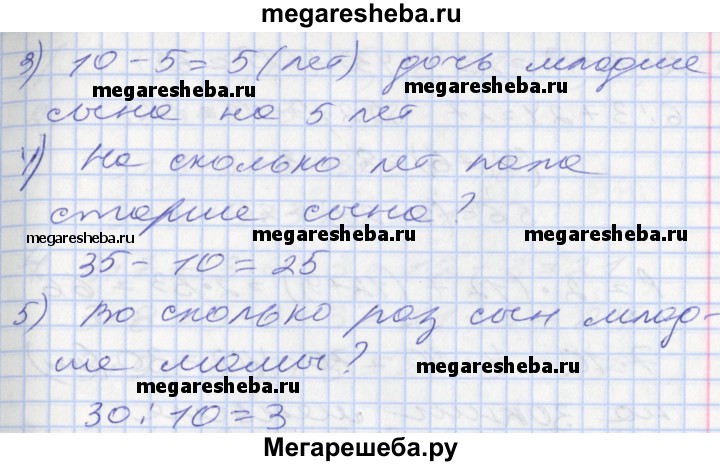 megaresheba.ru
3) 10 - 5 = 5 (лет) дочь младше
megaresheba.ru megaresheba.ru
сына на 5 лет
4) На сколько лет папа
старше сына?
megaresheba.ru megaresheba.ru megaresheba.ru
35 - 10 = 25
5) Во сколько раз сын млад-
ше мамы?
megaresheba.ru
megaresheba.ru
30 : 10 = 3
Мегарешеба.ру